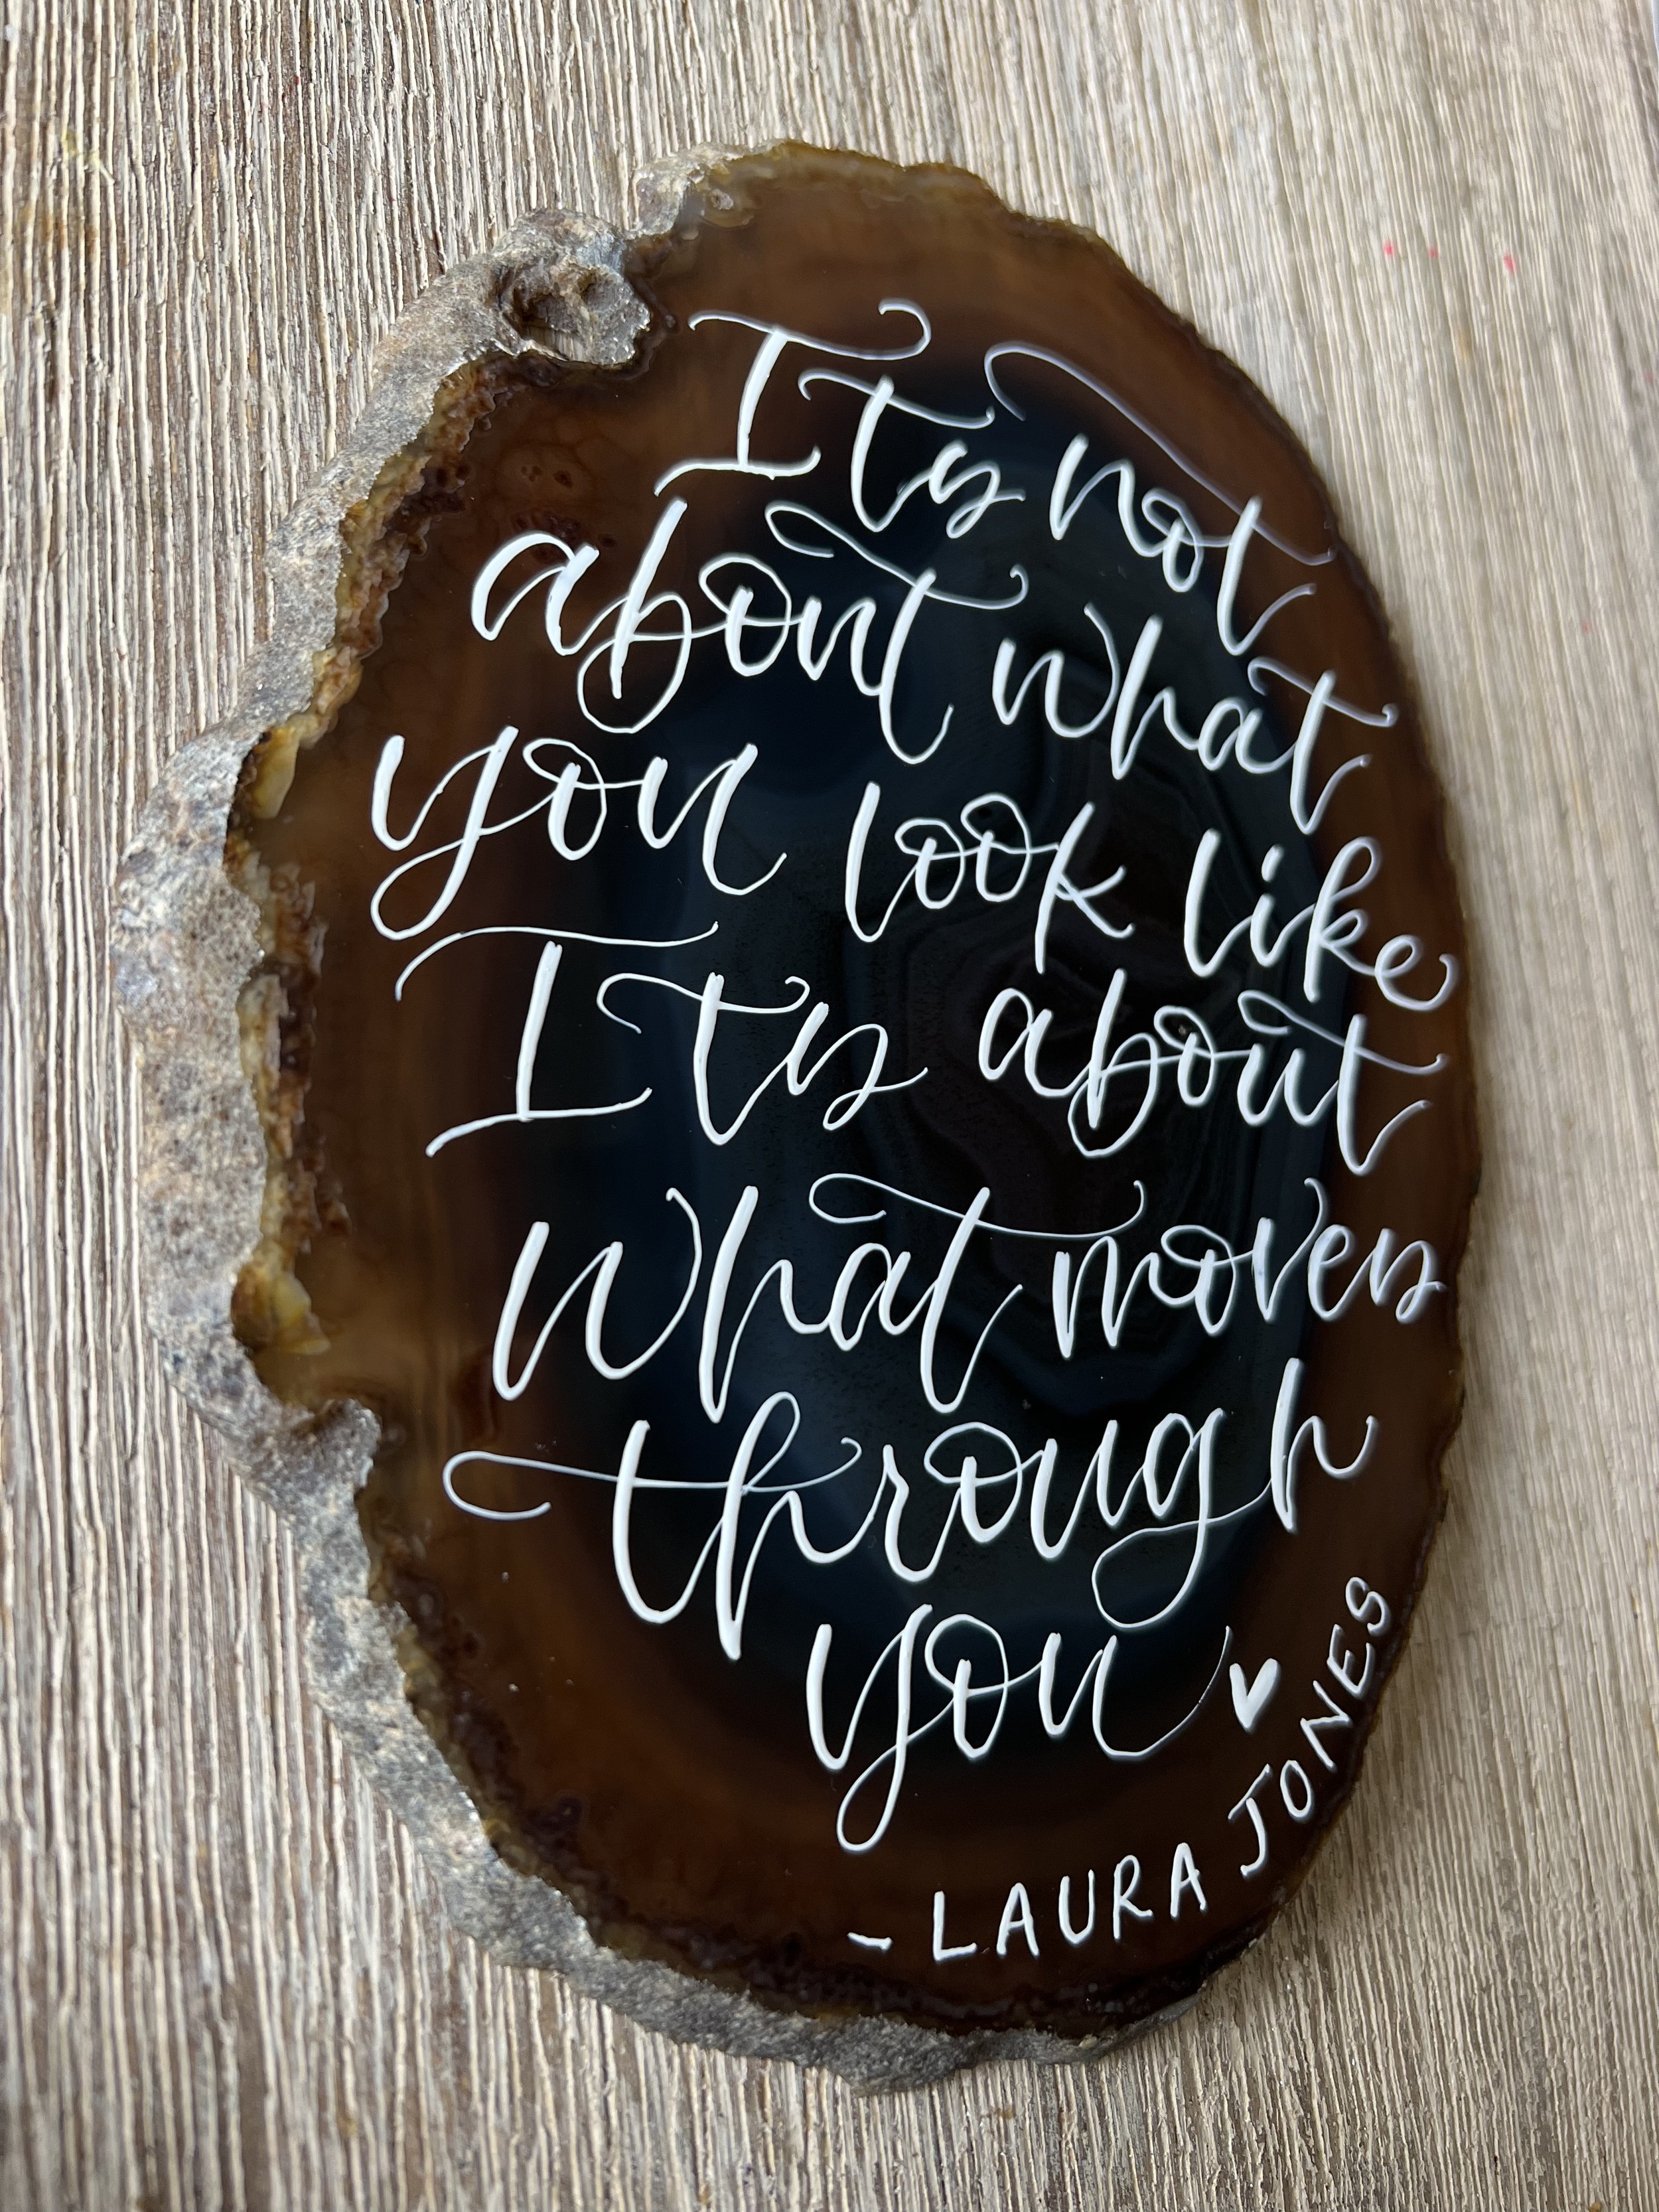 Its not
about what
you look like
Its about
what moves
through
you ♥
- LAURA JONES